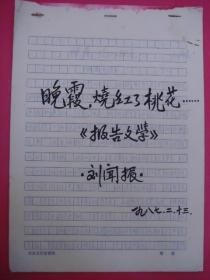 晚霞,燒红了桃花……
《报告文学》
·刘闻报·
一九八七.二.十三.